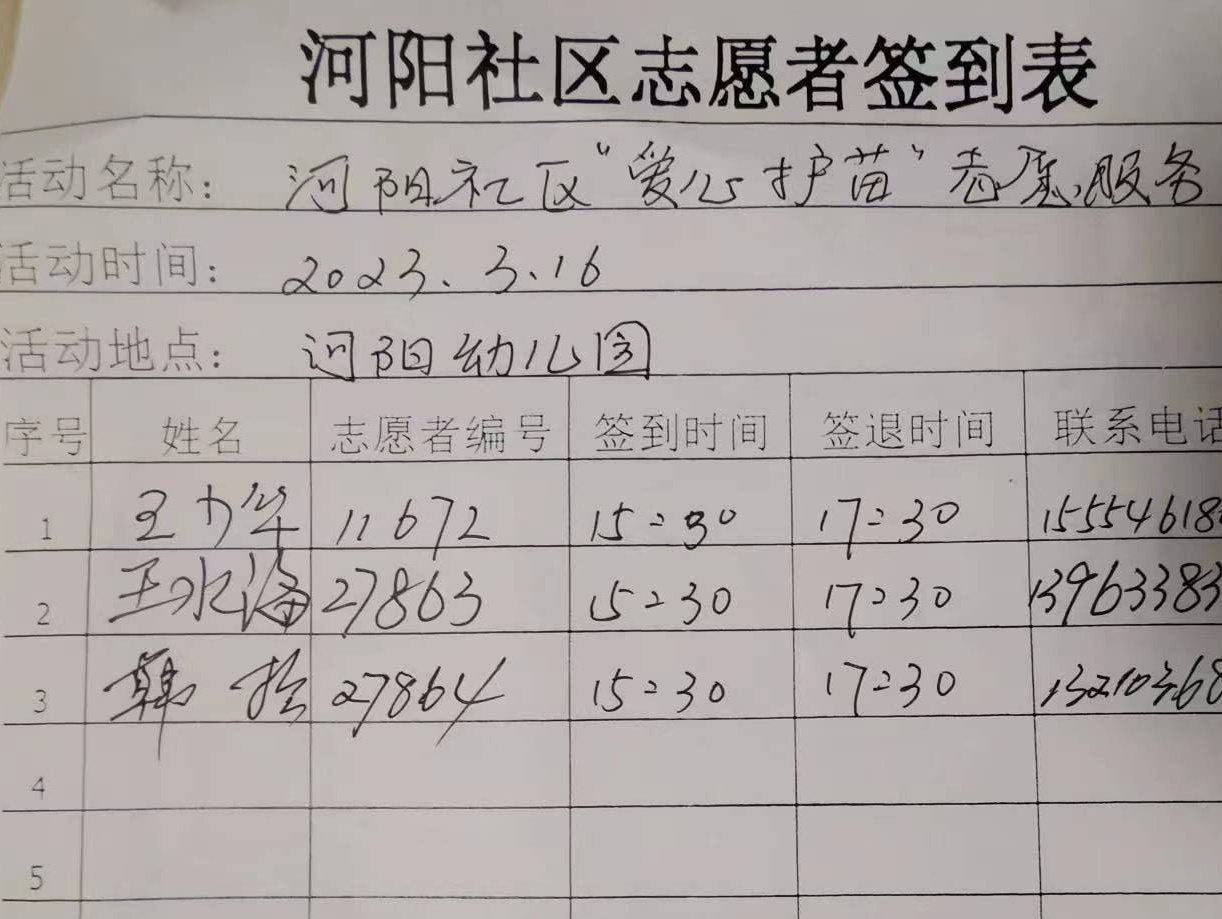 河阳社区志愿者签到表
活动名称: 河阳社区“爱心护苗”志愿服务
活动时间: 2023.3.16
活动地点: 河阳幼儿园
序号 姓名 志愿者编号 签到时间 签退时间 联系电话
1 王 11672 15:30 17:30 15554618
2 王水海 27863 15:30 17:30 13963383
3 韩 27864 15:30 17:30 13210368
4
5